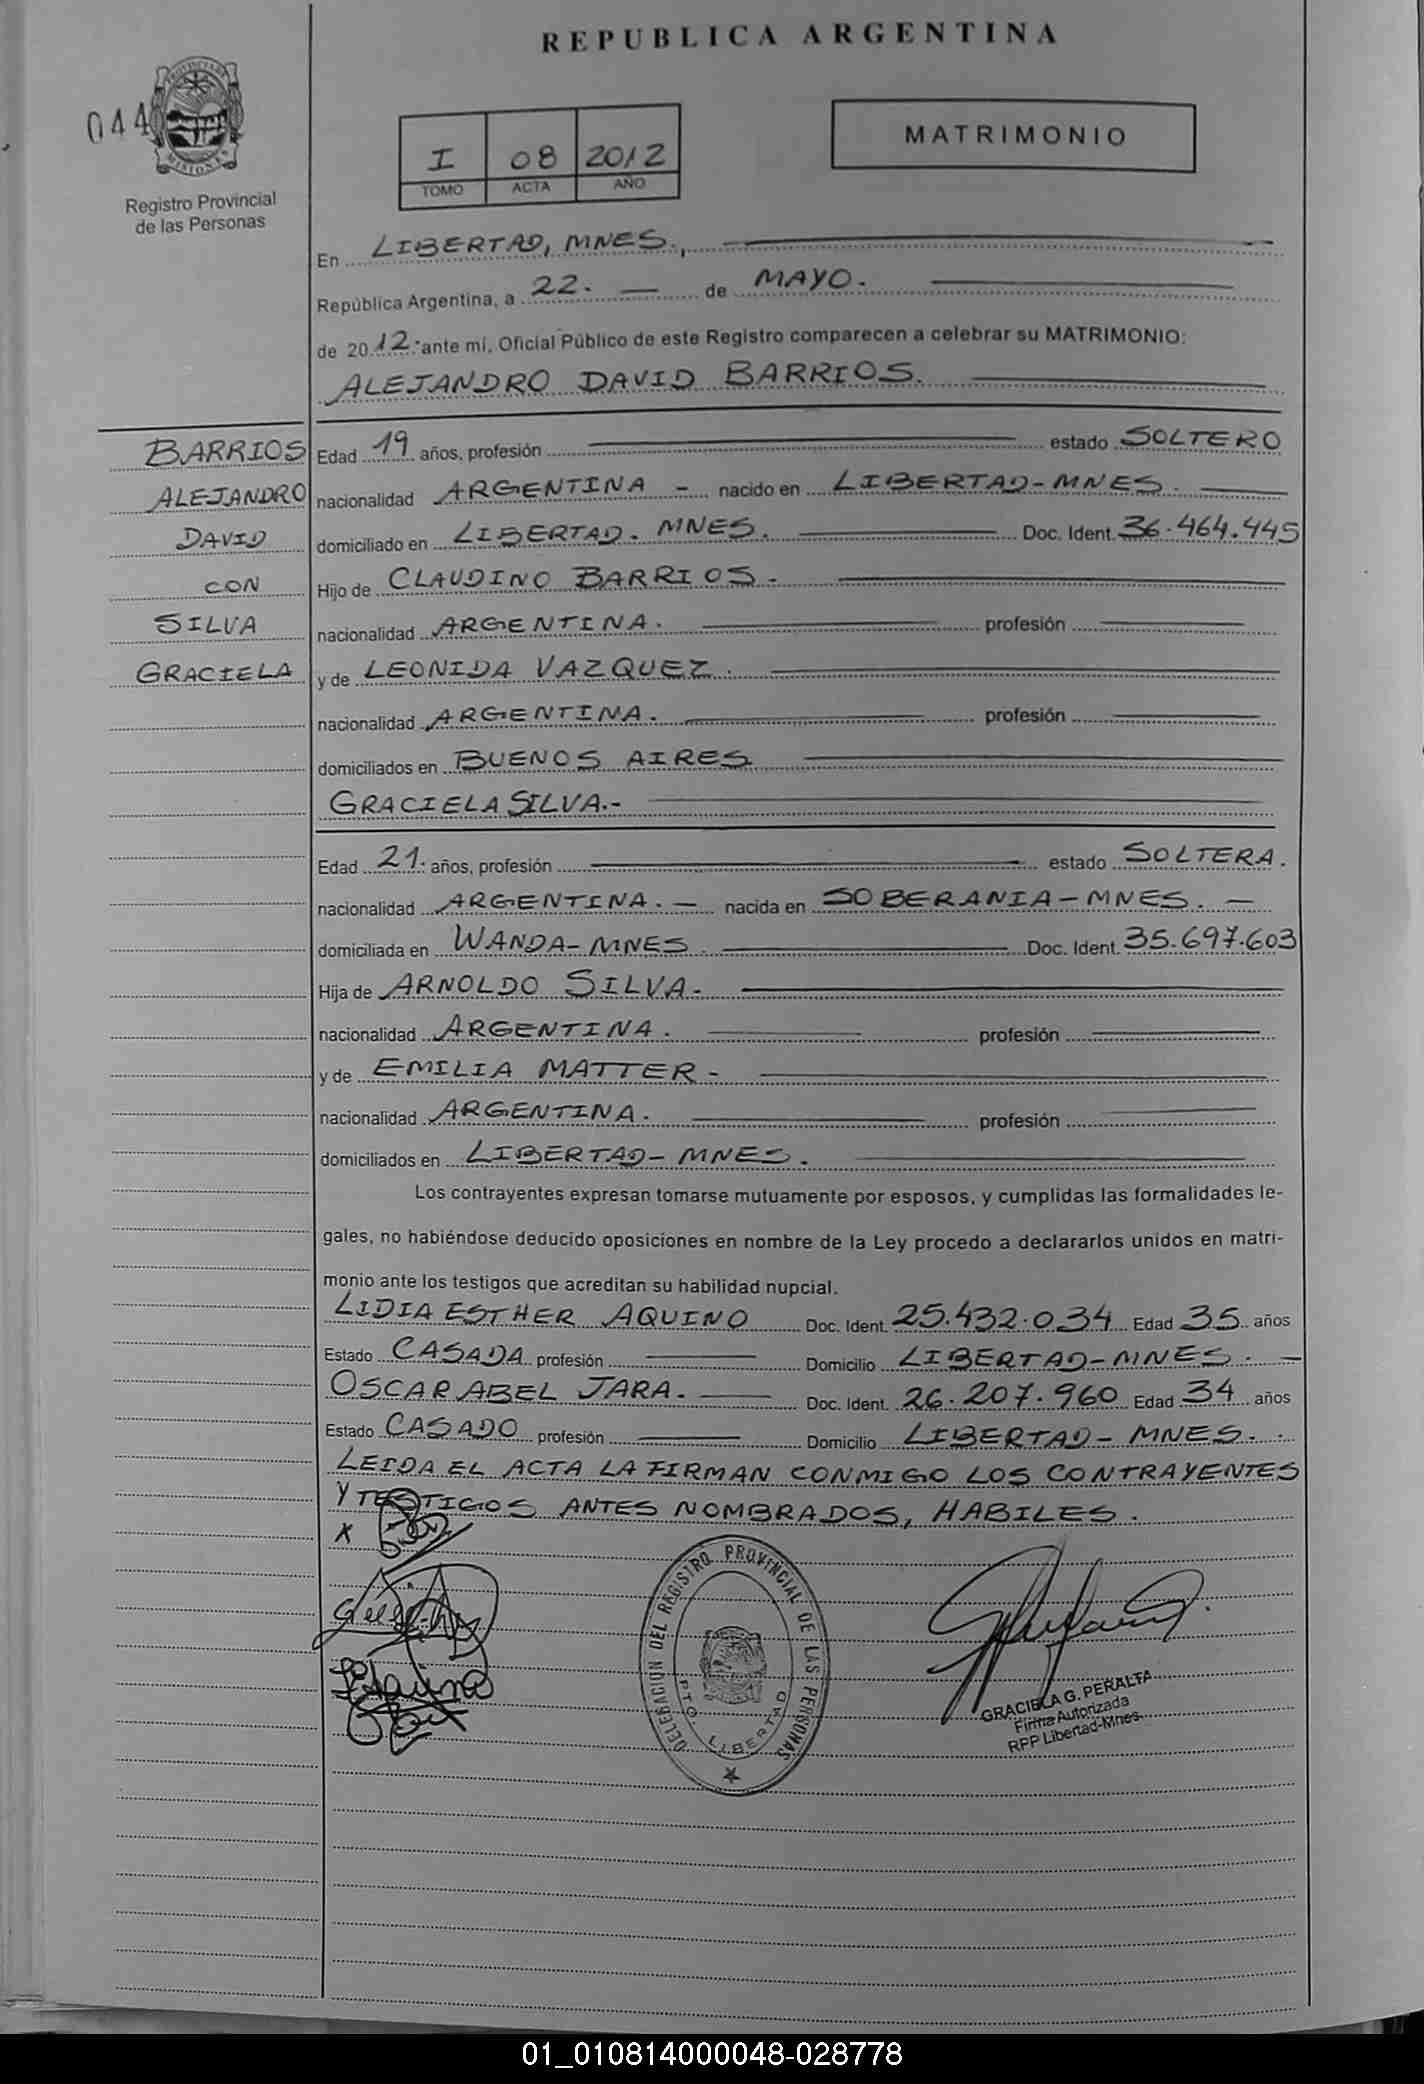 REPUBLICA ARGENTINA
044
PROVINCIA DE MISIONES
Registro Provincial
de las Personas
I 08 2012
TOMO ACTA AÑO
MATRIMONIO
En LIBERTAD, MNES.,
República Argentina, a 22. de MAYO.
de 2012. ante mí, Oficial Público de este Registro comparecen a celebrar su MATRIMONIO:
ALEJANDRO DAVID BARRIOS.
BARRIOS
ALEJANDRO
DAVID
CON
SILVA
GRACIELA
Edad 19 años, profesión estado SOLTERO
nacionalidad ARGENTINA - nacido en LIBERTAD-MNES.
domiciliado en LIBERTAD. MNES. Doc. Ident. 36.464.445
Hijo de CLAUDINO BARRIOS.
nacionalidad ARGENTINA. profesión
y de LEONIDA VAZQUEZ.
nacionalidad ARGENTINA. profesión
domiciliados en BUENOS AIRES
GRACIELA SILVA.-
Edad 21. años, profesión estado SOLTERA.
nacionalidad ARGENTINA. - nacida en SOBERANIA-MNES. -
domiciliada en WANDA-MNES. Doc. Ident. 35.697.603
Hija de ARNOLDO SILVA.
nacionalidad ARGENTINA. profesión
y de EMILIA MATTER -
nacionalidad ARGENTINA. profesión
domiciliados en LIBERTAD-MNES.
Los contrayentes expresan tomarse mutuamente por esposos, y cumplidas las formalidades le-
gales, no habiéndose deducido oposiciones en nombre de la Ley procedo a declararlos unidos en matri-
monio ante los testigos que acreditan su habilidad nupcial.
LIDIA ESTHER AQUINO Doc. Ident. 25.432.034 Edad 35 años
Estado CASADA profesión Domicilio LIBERTAD-MNES. -
OSCAR ABEL JARA. Doc. Ident. 26.207.960 Edad 34 años
Estado CASADO profesión Domicilio LIBERTAD-MNES.
LEIDA EL ACTA LA FIRMAN CONMIGO LOS CONTRAYENTES
Y TESTIGOS ANTES NOMBRADOS, HABILES.
X
DELEGACION DEL REGISTRO PROVINCIAL DE LAS PERSONAS
PTO. LIBERTAD
GRACIELA G. PERALTA
Firma Autorizada
RPP Libertad-Mnes.
01_010814000048-028778